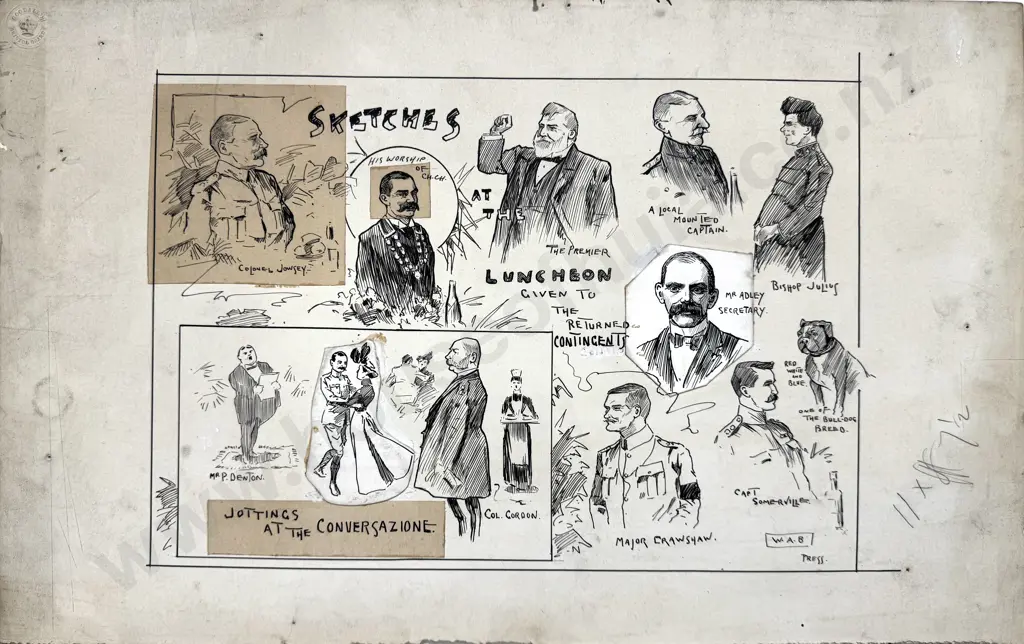 SKETCHES
AT
THE
LUNCHEON
GIVEN TO
THE
RETURNED
CONTINGENTS
COLONEL JOWSEY.
HIS WORSHIP
OF
CH.CH.
THE PREMIER
A LOCAL
MOUNTED
CAPTAIN.
BISHOP JULIUS
MR ADLEY
SECRETARY.
RED
WHITE
AND
BLUE.
ONE OF
THE BULL-DOG
BREED.
MR P. DENTON.
COL. GORDON.
JOTTINGS
AT THE CONVERSAZIONE
MAJOR CRAWSHAW.
CAPT
SOMERVILLE
W.A.B
PRESS.